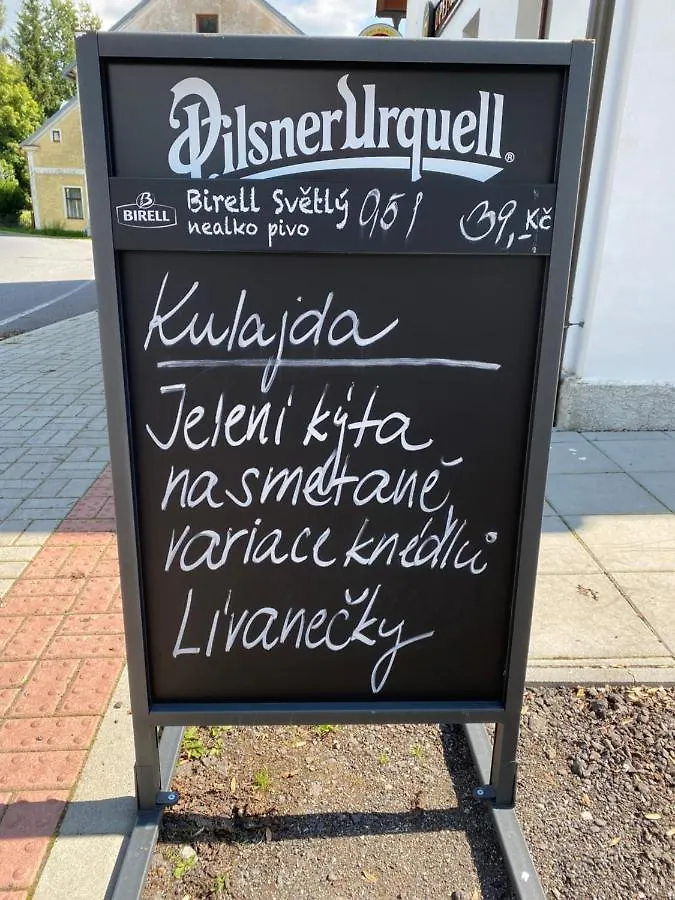 Pilsner Urquell®
BIRELL Birell Světlý 0,5 l 39,- Kč
nealko pivo
Kulajda
Jelení kýta
na smetaně,
variace knedlíků
Lívanečky